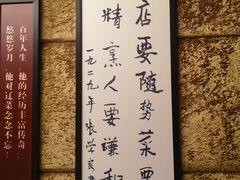 百年人生，他的经历丰富传奇；
悠悠岁月，他对辽菜念念不忘！
店要随势菜要
精烹人要谦和
一九二九年 张学良